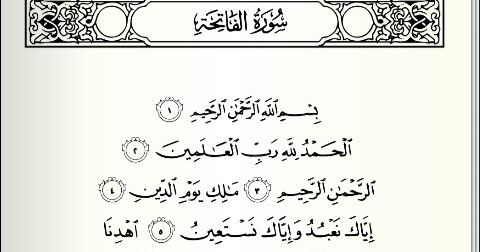 سُورَةُ الفَاتِحَةِ
بِسْمِ ٱللَّهِ ٱلرَّحْمَٰنِ ٱلرَّحِيمِ ١
ٱلْحَمْدُ لِلَّهِ رَبِّ ٱلْعَٰلَمِينَ ٢
ٱلرَّحْمَٰنِ ٱلرَّحِيمِ ٣ مَٰلِكِ يَوْمِ ٱلدِّينِ ٤
إِيَّاكَ نَعْبُدُ وَإِيَّاكَ نَسْتَعِينُ ٥ ٱهْدِنَا